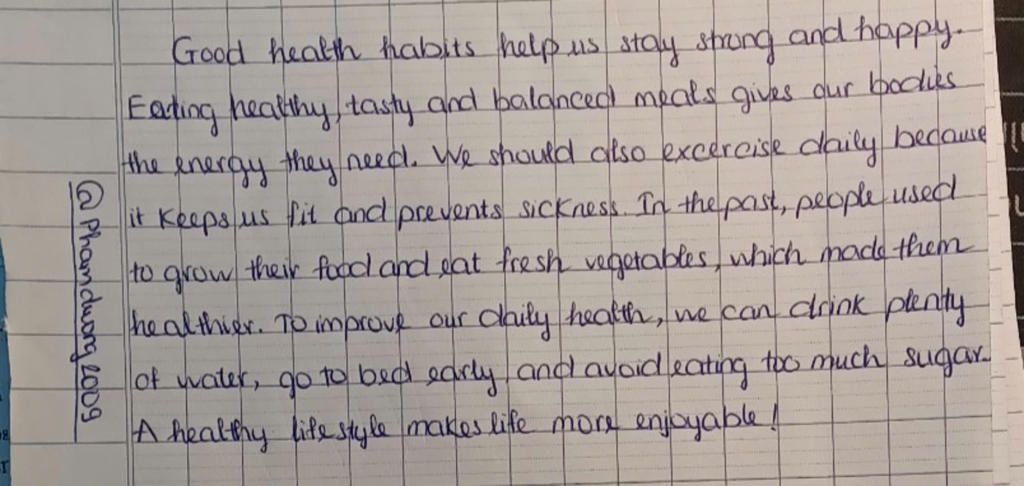 Good health habits help us stay strong and happy.
Eating healthy, tasty and balanced meals gives our bodies
the energy they need. We should also excercise daily because
it keeps us fit and prevents sickness. In the past, people used
to grow their food and eat fresh vegetables, which made them
healthier. To improve our daily health, we can drink plenty
of water, go to bed early and avoid eating too much sugar.
A healthy lifestyle makes life more enjoyable!